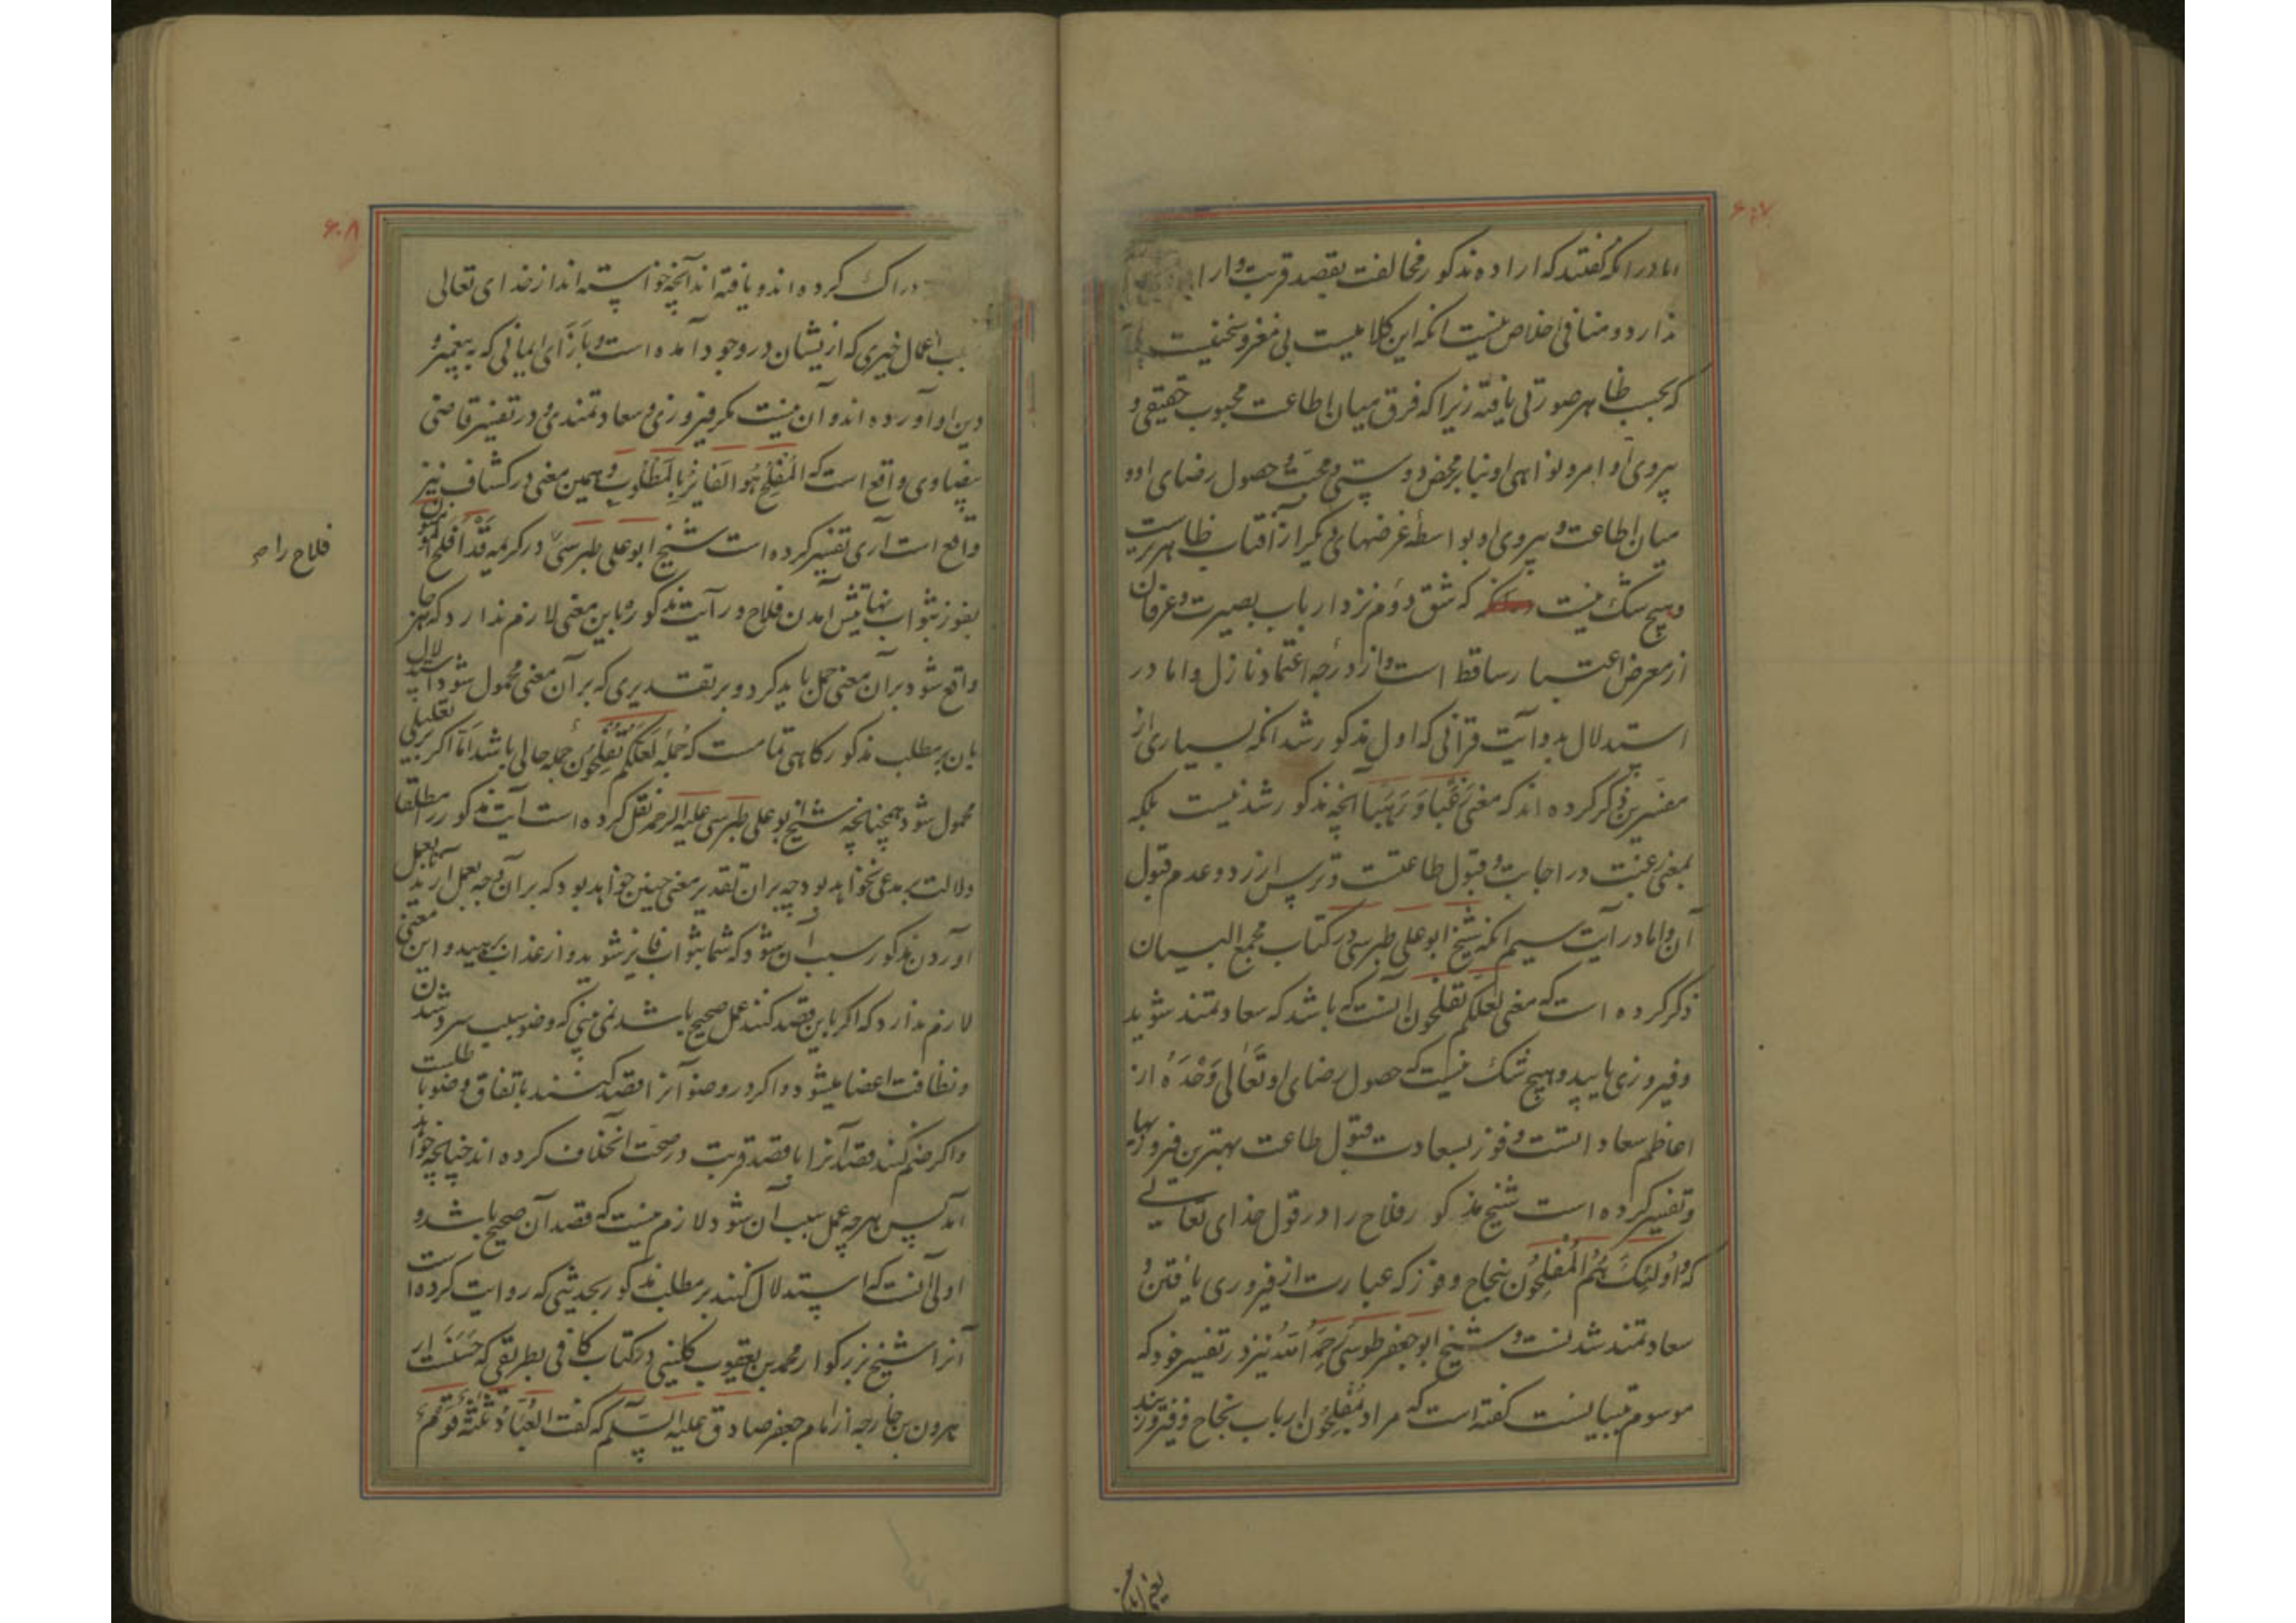 ۶۰۷
اما در انکه گفتند که اراده مذکور مخالفت بقصد قربت و ارا
ندارد و منافی اخلاص نیست انکه این کلامیست بی مغز و سخنیست
که بحسب ظاهر صورتی یافته زیرا که فرق میان اطاعت محبوب حقیقی و
پیروی اوامر و نواهی او بنابر محض دوستی و محبت و حصول رضای او و
میان اطاعت و پیروی او بواسطهٔ غرضهای دیگر از آفتاب ظاهرتریست
و هیچ شک نیست که شق دوم نزد ارباب بصیرت و عرفان
از معرض اعتبار ساقط است و از درجه اعتماد نازل و اما در
استدلال بدو آیت قرآنی که اول مذکور شد انکه بسیاری از
مفسرین ذکر کرده اند که معنی رَغَبًا وَ رَهَبًا آنچه مذکور شد نیست بلکه
بمعنی رغبت در اجابت و قبول طاعتست و ترس از رد و عدم قبول
آن و اما در آیت سیم انکه شیخ ابوعلی طبرسی در کتاب مجمع البیان
ذکر کرده است که معنی لعلکم تفلحون آنست که باشد که سعادتمند شوید
و فیروزی یابید و هیچ شک نیست که حصول رضای او تَعَالی وَحْدَهُ از
اعاظم سعاداتست و فوز بسعادت قبول طاعت بهترین فیروزیها
و تفسیر کرده است شیخ مذکور فلاح را در قول خدای تعالی
که وَ اُولٰئِکَ هُمُ الْمُفْلِحُون بنجاح و فوز که عبارت از فیروزی یافتن و
سعادتمند شدنست و شیخ ابوجعفر طوسی رَحِمَهُ الله نیز در تفسیر خود که
موسوم بتبیانست گفته است که مراد بمُفْلِحُون ارباب نجاح و فیروزیند
۶۰۸
دراک کرده اند و یافته اند آنچه خواسته اند از خدای تعالی
بسبب اعمال خیری که ازیشان در وجود آمده است و بازای ایمانی که به پیغمبر و
دین او آورده اند و آن نیست مگر فیروزی و سعادتمندی و در تفسیر قاضی
بیضاوی واقع است که المُفْلِحُ هُوَ الفَائزُ بِالمَطْلُوبِ و همین معنی در کشاف نیز
واقع است آری تفسیر کرده است شیخ ابوعلی طبرسی در کریمه قَدْ اَفْلَحَ المؤمنون
فلاح را
بفوز بثواب نهایتش آمدن فلاح در آیت مذکوره باین معنی لازم ندارد که هر جا
واقع شود بر آن معنی حمل باید کرد و بر تقدیری که بر آن معنی محمول شود استدلال
بان بر مطلب مذکور گاهی تمامست که جُمله لَعَلَّکُم تُفْلِحُون جمله حالی باشد اما اگر بر تعلیلی
محمول شود همچنانچه شیخ ابوعلی طبرسی علیه الرحمه نقل کرده است آیت مذکور را مطلقا
دلالت بر مدعی نخواهد بود چه بر ان تقدیر معنی چنین خواهد بود که بر آن وجه بعمل آرید
آوردن مذکور سبب آن شود که شما بثواب فایز شوید و از عذاب برهید و این معنی
لازم ندارد که اگر باین قصد کنند عمل صحیح باشد نمی بینی که وضو سبب سرد شدن
و نظافت اعضا میشود و اگر در وضو آنرا قصد کنند باتفاق وضو باطلست
و اگر ضم کنند قصد آنرا با قصد قربت در صحت آن خلاف کرده اند چنانچه خواهد
آمد پس هر چه عمل سبب آن شود لازم نیست که قصد آن صحیح باشد و
اولی آنست که استدلال کنند بر مطلب مذکور بحدیثی که روایت کرده است
آنرا شیخ بزرگوار محمد بن یعقوب کلینی در کتاب کافی بطریقی که حَسَنَست از
هرون بن خارجه از امام جعفر صادق علیه السلام که گفت العُبّادُ ثلثةٌ قومٌ